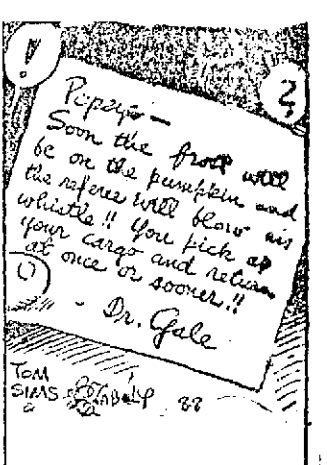 !
?
Popeye—
Soon the frost will
be on the pumpkin and
the referee will blow his
whistle!! You pick up
your cargo and return
at once or sooner!!
- Dr. Gale
TOM
SIMS